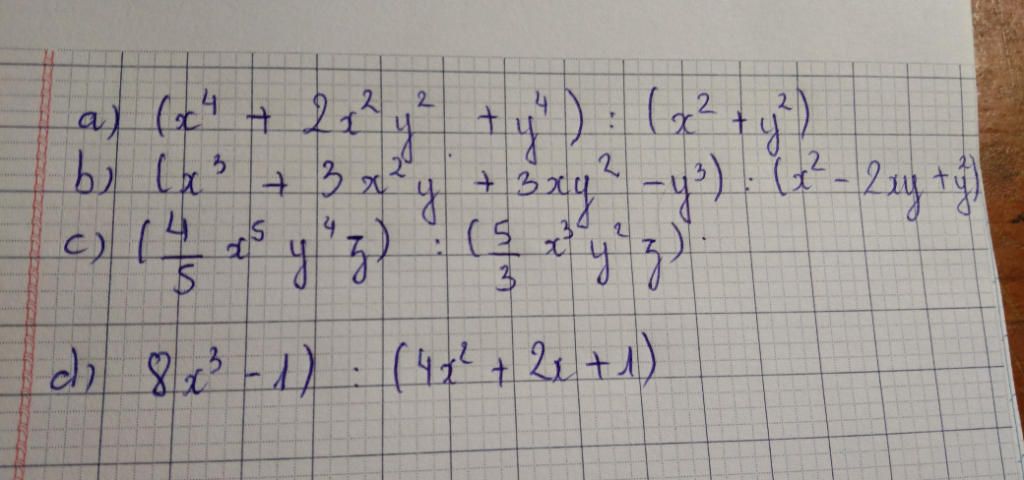 a) (x⁴ + 2x²y² + y⁴) : (x² + y²)
b) (x³ + 3x²y + 3xy² - y³) : (x² - 2xy + y²)
c) (4/5 x⁵ y⁴ z) : (5/3 x³ y² z)
d) 8x³ - 1) : (4x² + 2x + 1)